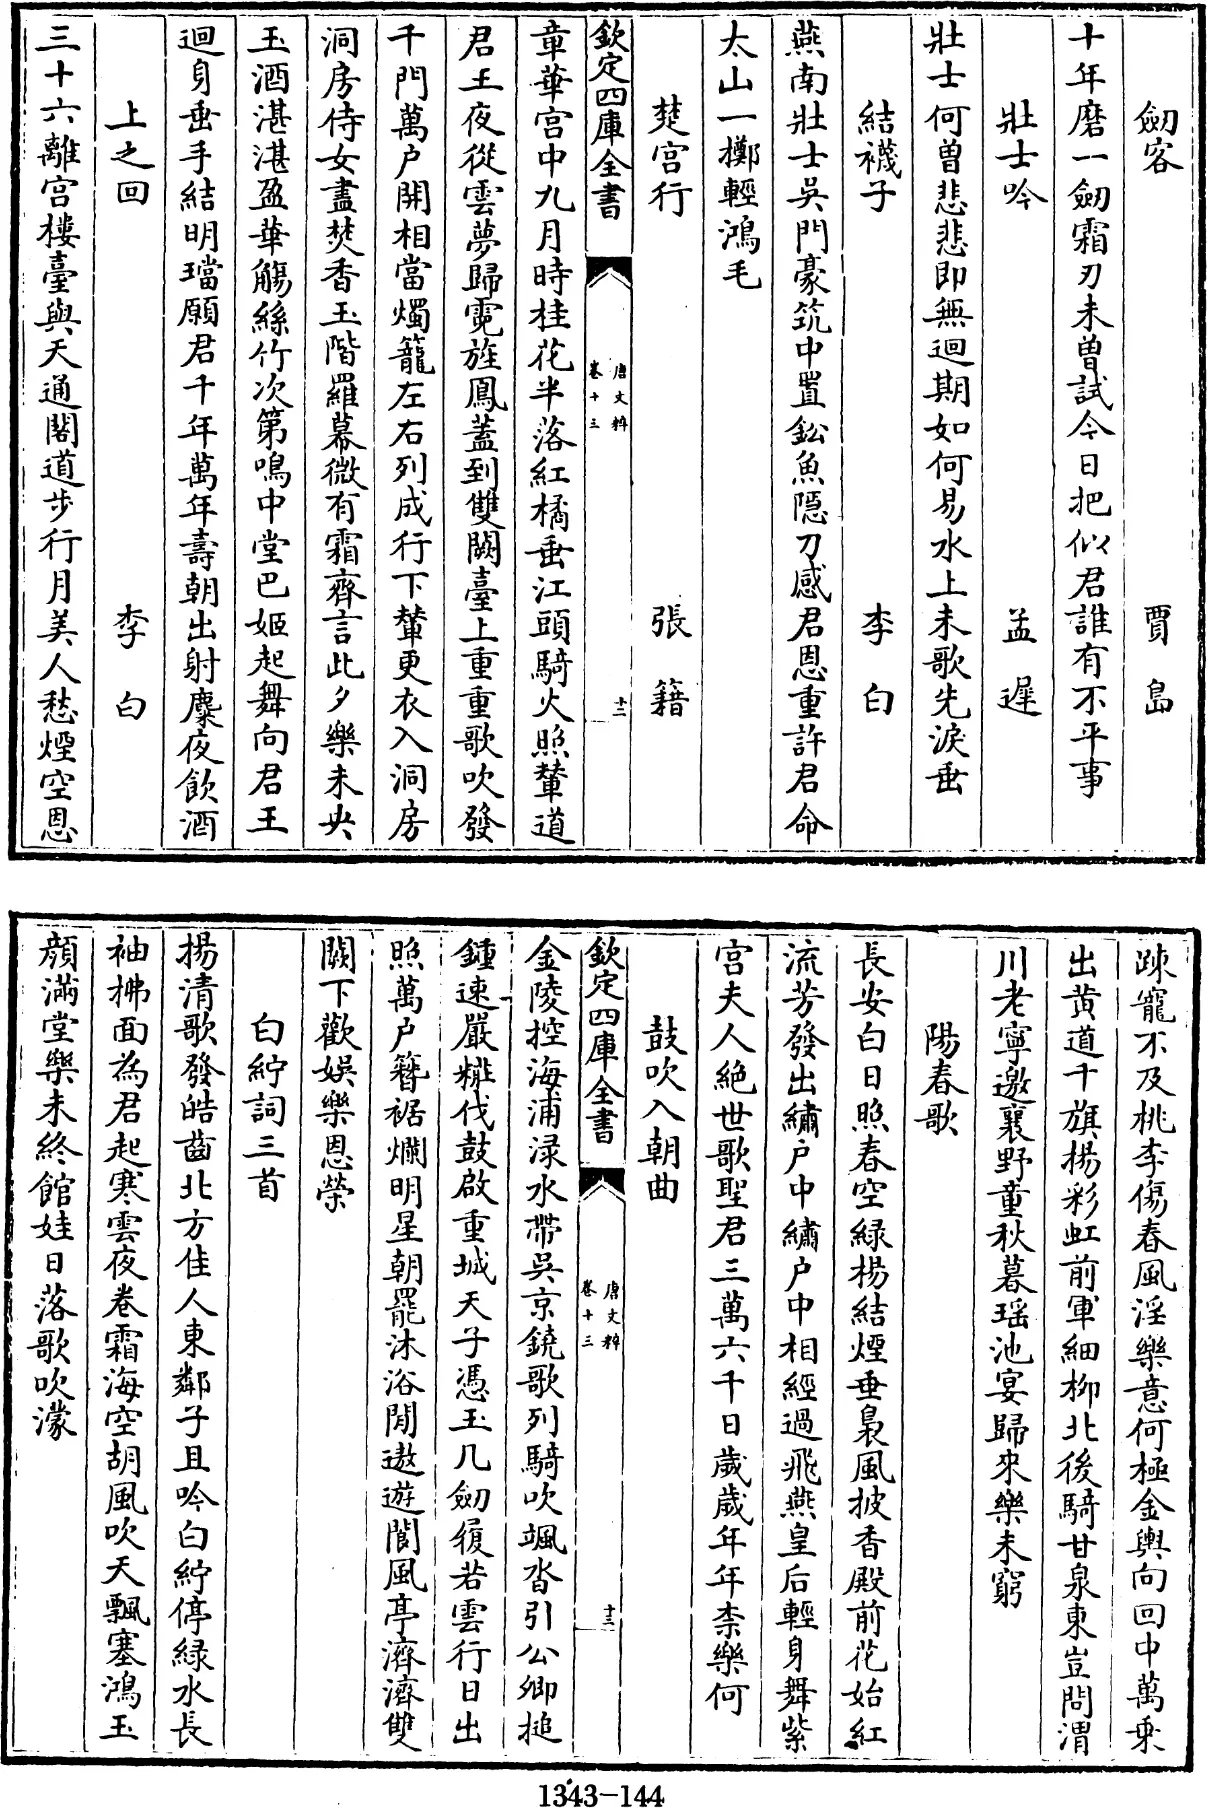 劒客 賈島
十年磨一劒霜刃未曾試今日把似君誰有不平事
壯士吟 孟遲
壯士何曾悲悲即無迴期如何易水上未歌先淚垂
結襪子 李白
燕南壯士吳門豪筑中置鈆魚隱刀感君恩重許君命
太山一擲輕鴻毛
楚宮行 張籍
欽定四庫全書 唐文粹 卷十三 十二
章華宮中九月時桂花半落紅橘垂江頭騎火照輦道
君王夜從雲夢歸霓旌鳳蓋到雙闕臺上重重歌吹發
千門萬户開相當燭籠左右列成行下輦更衣入洞房
洞房侍女盡焚香玉階羅幕微有霜齊言此夕樂未央
玉酒湛湛盈華觴絲竹次第鳴中堂巴姬起舞向君王
迴身垂手結明璫願君千年萬年壽朝出射麋夜飲酒
上之回 李白
三十六離宮樓臺與天通閣道步行月美人愁煙空恩
疎寵不及桃李傷春風淫樂意何極金輿向回中萬乘
出黄道千旗揚彩虹前軍細柳北後騎甘泉東豈問渭
川老寧邀襄野童秋暮瑶池宴歸來樂未窮
陽春歌
長安白日照春空緑楊結煙垂裊風披香殿前花始紅
流芳發出繡户中繡户中相經過飛燕皇后輕身舞紫
宮夫人絶世歌聖君三萬六千日歲歲年年柰樂何
鼓吹入朝曲
欽定四庫全書 唐文粹 卷十三 十三
金陵控海浦渌水帶吳京鐃歌列騎吹颯沓引公卿搥
鍾速嚴糚伐鼓啟重城天子憑玉几劒履若雲行日出
照萬户簪裾爛明星朝罷沐浴閒遨遊閬風亭濟濟雙
闕下歡娛樂恩榮
白紵詞三首
揚清歌發皓齒北方佳人東鄰子且吟白紵停緑水長
袖拂面為君起寒雲夜卷霜海空胡風吹天飄塞鴻玉
顔滿堂樂未終館娃日落歌吹濛
1343-144